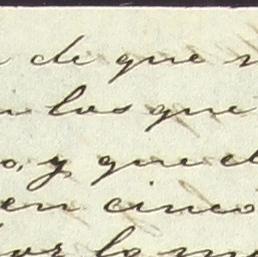 de que
los que
o, y que el
en cinco
por lo m